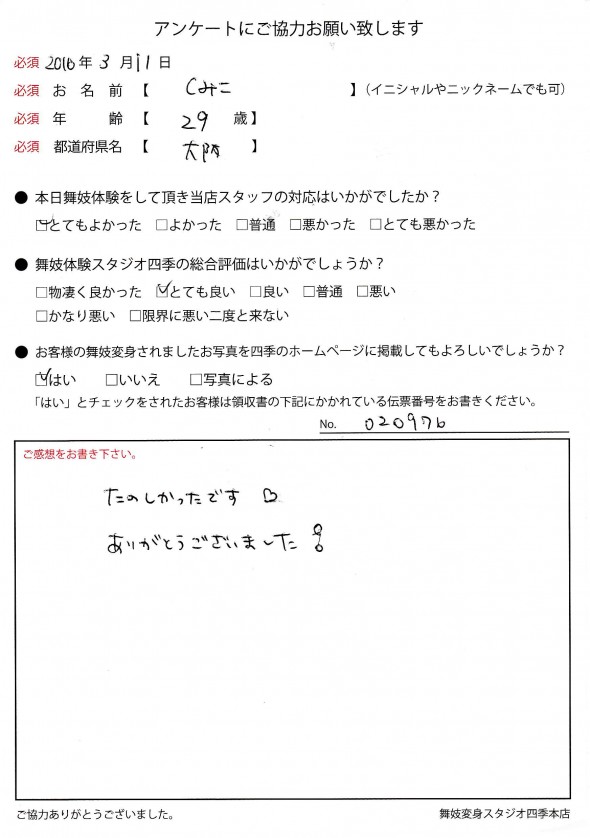 アンケートにご協力お願い致します
必須 2016年 3 月 11 日
必須 お 名 前 【 くみこ 】（イニシャルやニックネームでも可）
必須 年 齢 【 29 歳】
必須 都道府県名 【 大阪 】
● 本日舞妓体験をして頂き当店スタッフの対応はいかがでしたか？
☑とてもよかった □よかった □普通 □悪かった □とても悪かった
● 舞妓体験スタジオ四季の総合評価はいかがでしょうか？
□物凄く良かった ☑とても良い □良い □普通 □悪い
□かなり悪い □限界に悪い二度と来ない
● お客様の舞妓変身されましたお写真を四季のホームページに掲載してもよろしいでしょうか？
☑はい □いいえ □写真による
「はい」とチェックをされたお客様は領収書の下記にかかれている伝票番号をお書きください。
No. 020976
ご感想をお書き下さい。
たのしかったです ♡
ありがとうございました！
ご協力ありがとうございました。
舞妓変身スタジオ四季本店